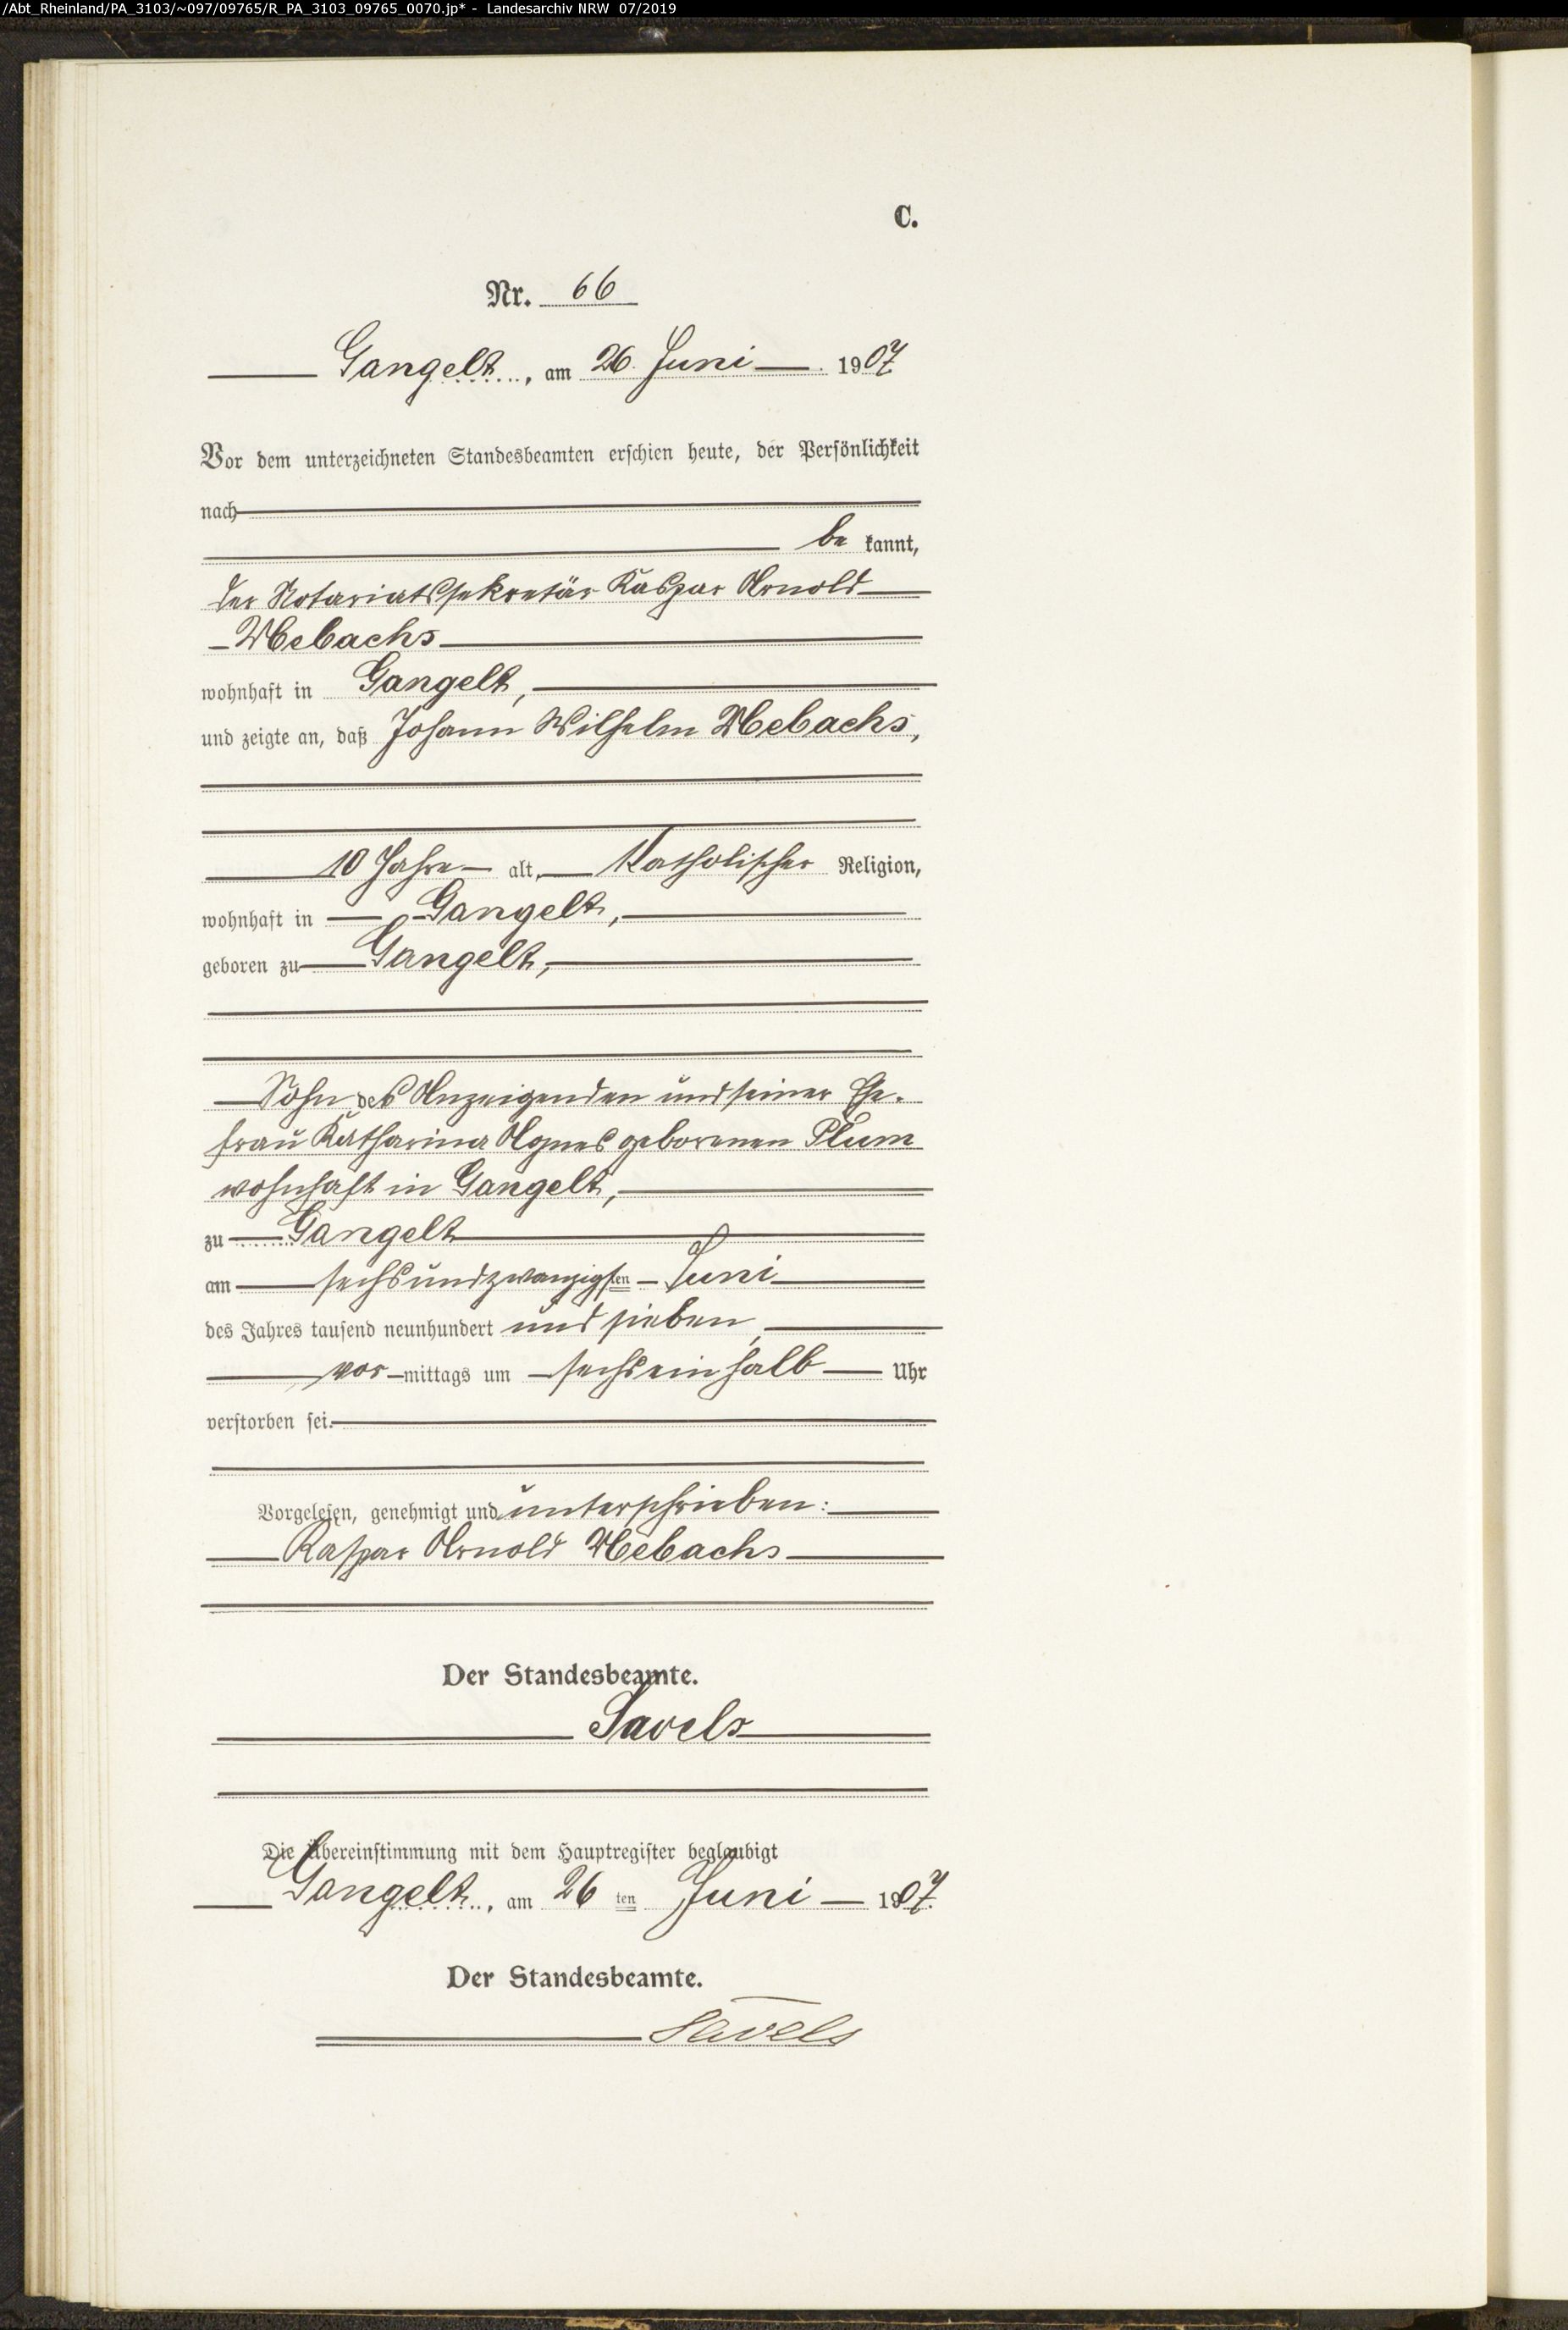 /Abt_Rheinland/PA_3103/~097/09765/R_PA_3103_09765_0070.jp* - Landesarchiv NRW 07/2019
C.
Nr. 66
Gangelt, am 26. Juni 1907
Vor dem unterzeichneten Standesbeamten erschien heute, der Persönlichkeit
nach
be kannt,
der Notariatssekretär Kaspar Arnold
wohnhaft in Gangelt,
und zeigte an, daß Johann Wilhelm
10 Jahre alt, Katholischer Religion,
wohnhaft in Gangelt,
geboren zu Gangelt,
Sohn des Anzeigenden und seiner Ehe-
frau Katharina Agnes geborenen Plum
wohnhaft in Gangelt,
zu Gangelt
am sechsundzwanzigsten Juni
des Jahres tausend neunhundert und sieben,
vor mittags um sechseinhalb Uhr
verstorben sei.
Vorgelesen, genehmigt und unterschrieben:
Kaspar Arnold
Der Standesbeamte.
Savels
Die Übereinstimmung mit dem Hauptregister beglaubigt
Gangelt, am 26 ten Juni 1907.
Der Standesbeamte.
Savels